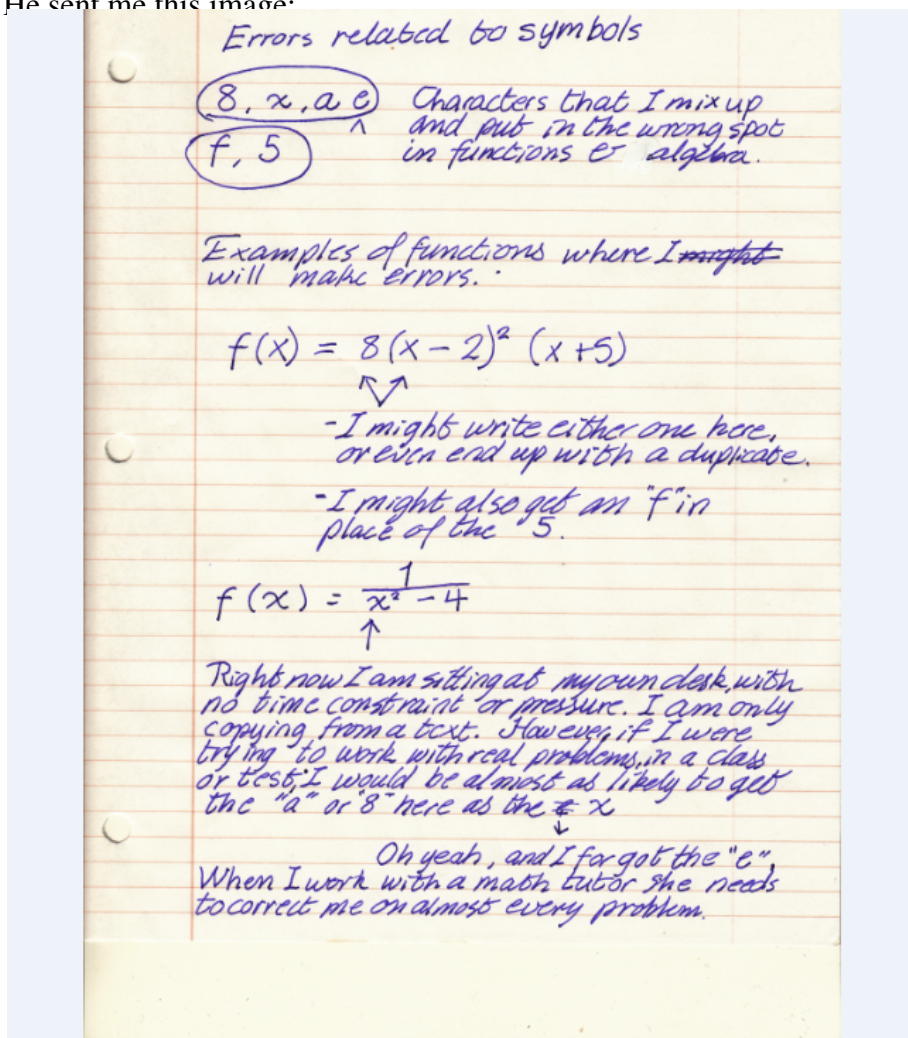 He sent me this image:
Errors related to symbols
8, x, a e
^
f, 5
Characters that I mix up
and put in the wrong spot
in functions & algebra.
Examples of functions where I might
will make errors.
f(x) = 8(x - 2)² (x +5)
- I might write either one here,
or even end up with a duplicate.
- I might also get an "f" in
place of the 5.
f(x) = 1
x² - 4
Right now I am sitting at my own desk, with
no time constraint or pressure. I am only
copying from a text. However, if I were
trying to work with real problems, in a class
or test, I would be almost as likely to get
the "a" or "8" here as the x
Oh yeah, and I forgot the "e".
When I work with a math tutor she needs
to correct me on almost every problem.